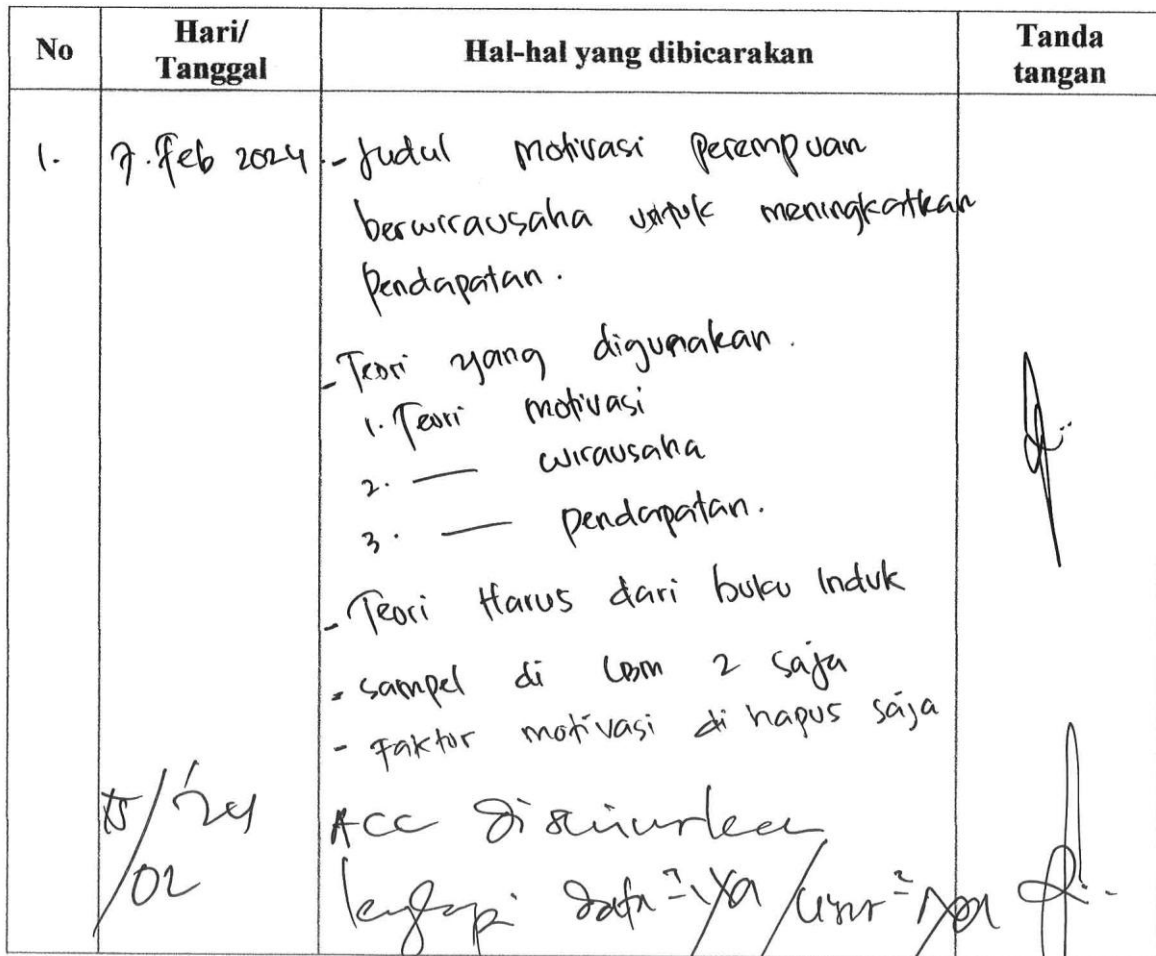 No
Hari/
Tanggal
Hal-hal yang dibicarakan
Tanda
tangan
1. 7. Feb 2024 - Judul motivasi perempuan
berwirausaha untuk meningkatkan
pendapatan.
- Teori yang digunakan.
1. Teori motivasi
2. — wirausaha
3. — pendapatan.
- Teori Harus dari buku Induk
- sampel di LBM 2 saja
- Faktor motivasi di hapus saja
/02 ACC
lengkapi data²nya /